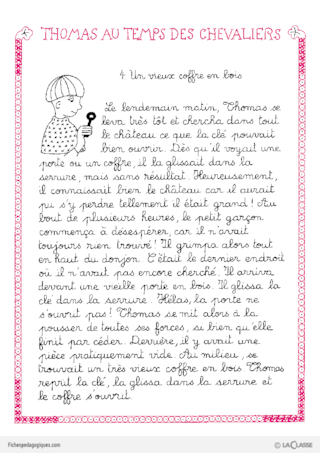 THOMAS AU TEMPS DES CHEVALIERS
4. Un vieux coffre en bois
Le lendemain matin, Thomas se
leva très tôt et chercha dans tout
le château ce que la clé pouvait
bien ouvrir. Dès qu'il voyait une
porte ou un coffre, il la glissait dans la
serrure, mais sans résultat. Heureusement,
il connaissait bien le château car il aurait
pu s'y perdre tellement il était grand ! Au
bout de plusieurs heures, le petit garçon
commença à désespérer, car il n'avait
toujours rien trouvé ! Il grimpa alors tout
en haut du donjon. C'était le dernier endroit
où il n'avait pas encore cherché. Il arriva
devant une vieille porte en bois. Il glissa la
clé dans la serrure. Hélas, la porte ne
s'ouvrit pas ! Thomas se mit alors à la
pousser de toutes ses forces, si bien qu'elle
finit par céder. Derrière, il y avait une
pièce pratiquement vide. Au milieu, se
trouvait un très vieux coffre en bois. Thomas
reprit la clé, la glissa dans la serrure et
le coffre s'ouvrit.
Fichespedagogiques.com
© LA CLASSE